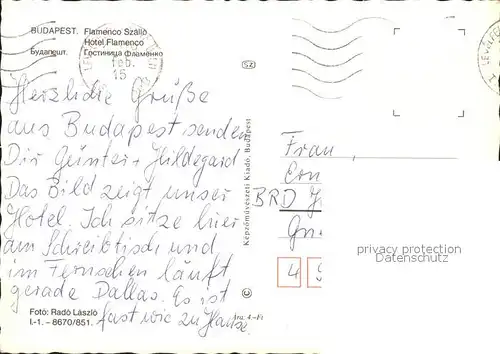 BUDAPEST. Flamenco Szálló
Hotel Flamenco
Будапешт. Гостиница Фламенко
feb.
15
SZ
Herzliche Grüße
aus Budapest senden
Dir Günter + Hildegard
Das Bild zeigt unser
Hotel. Ich sitze hier
am Schreibtisch und
im Fernsehen läuft
gerade Dallas. Es ist
fast wie zu Hause.
Fotó: Radó László
I.-1. – 8670/851.
Ára: 4.-Ft
©
Képzőművészeti Kiadó, Budapest
Frau
BRD
4
privacy protection
Datenschutz